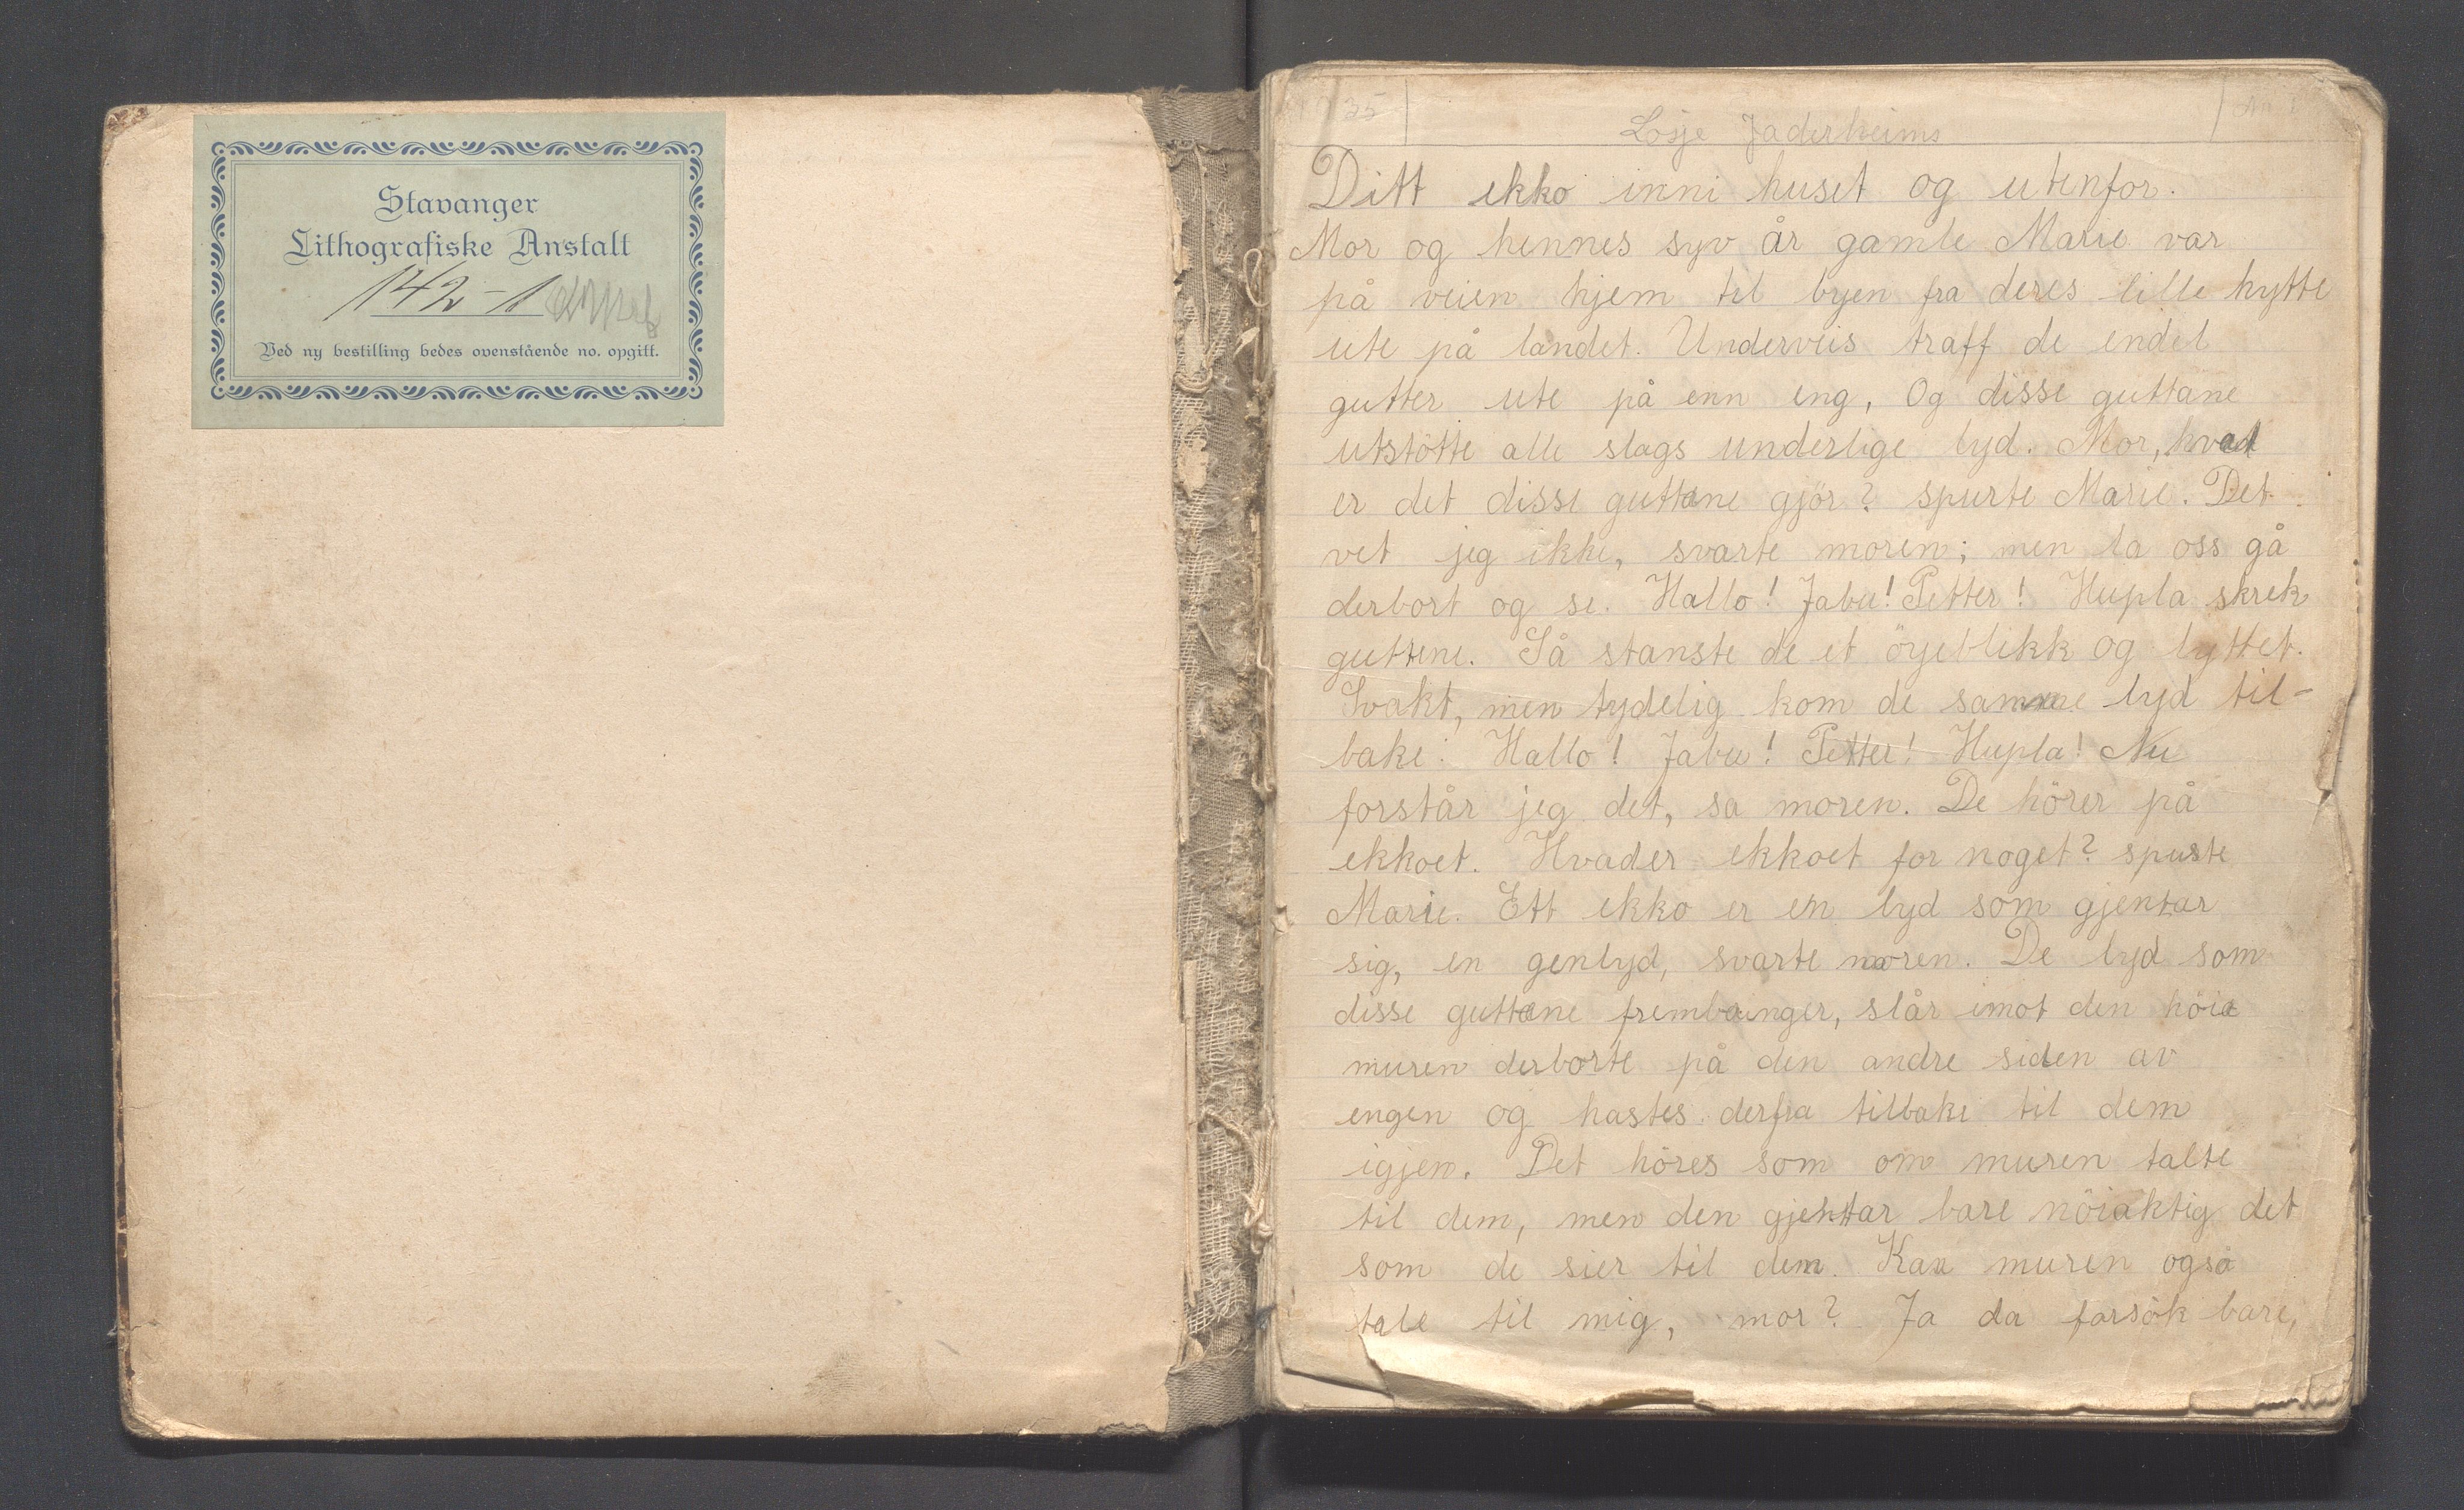 Stavanger
Lithografiske Anstalt
142-1
Ved ny bestilling bedes ovenstående no. opgitt.
35
Losje Jaderheims
Ditt ekko inni huset og utenfor.
Mor og hennes syv år gamle Marie var
på veien hjem til byen fra deres lille hytte
ute på landet. Underveis traff de endel
gutter ute på enn eng, Og disse guttane
utstötte alle slags underlige lyd. Mor, hvad
er det disse guttene gjör? spurte Marie. Det
vet jeg ikke, svarte moren; men la oss gå
derbort og se. Hallo! Jabu! Petter! Hupla skrek
guttene. Så stanste de et öyeblikk og lyttet.
Svakt, men tydelig kom de samme lyd til-
bake: Hallo! Jabu! Petter! Hupla! Nu
forstår jeg det, sa moren. De hörer på
ekkoet. Hvader ekkoet for noget? spuste
Marie. Ett ekko er en lyd som gjentar
sig, en genlyd, svarte moren. De lyd som
disse guttene frembainger, slår imot den höie
muren derborte på den andre siden av
engen og hastes derfra tilbake til dem
igjen. Det höres som om muren talte
til dem, men den gjenttar bare nöiaktig det
som de sier til dem. Kan muren også
tale til mig, mor? Ja da forsök bare,